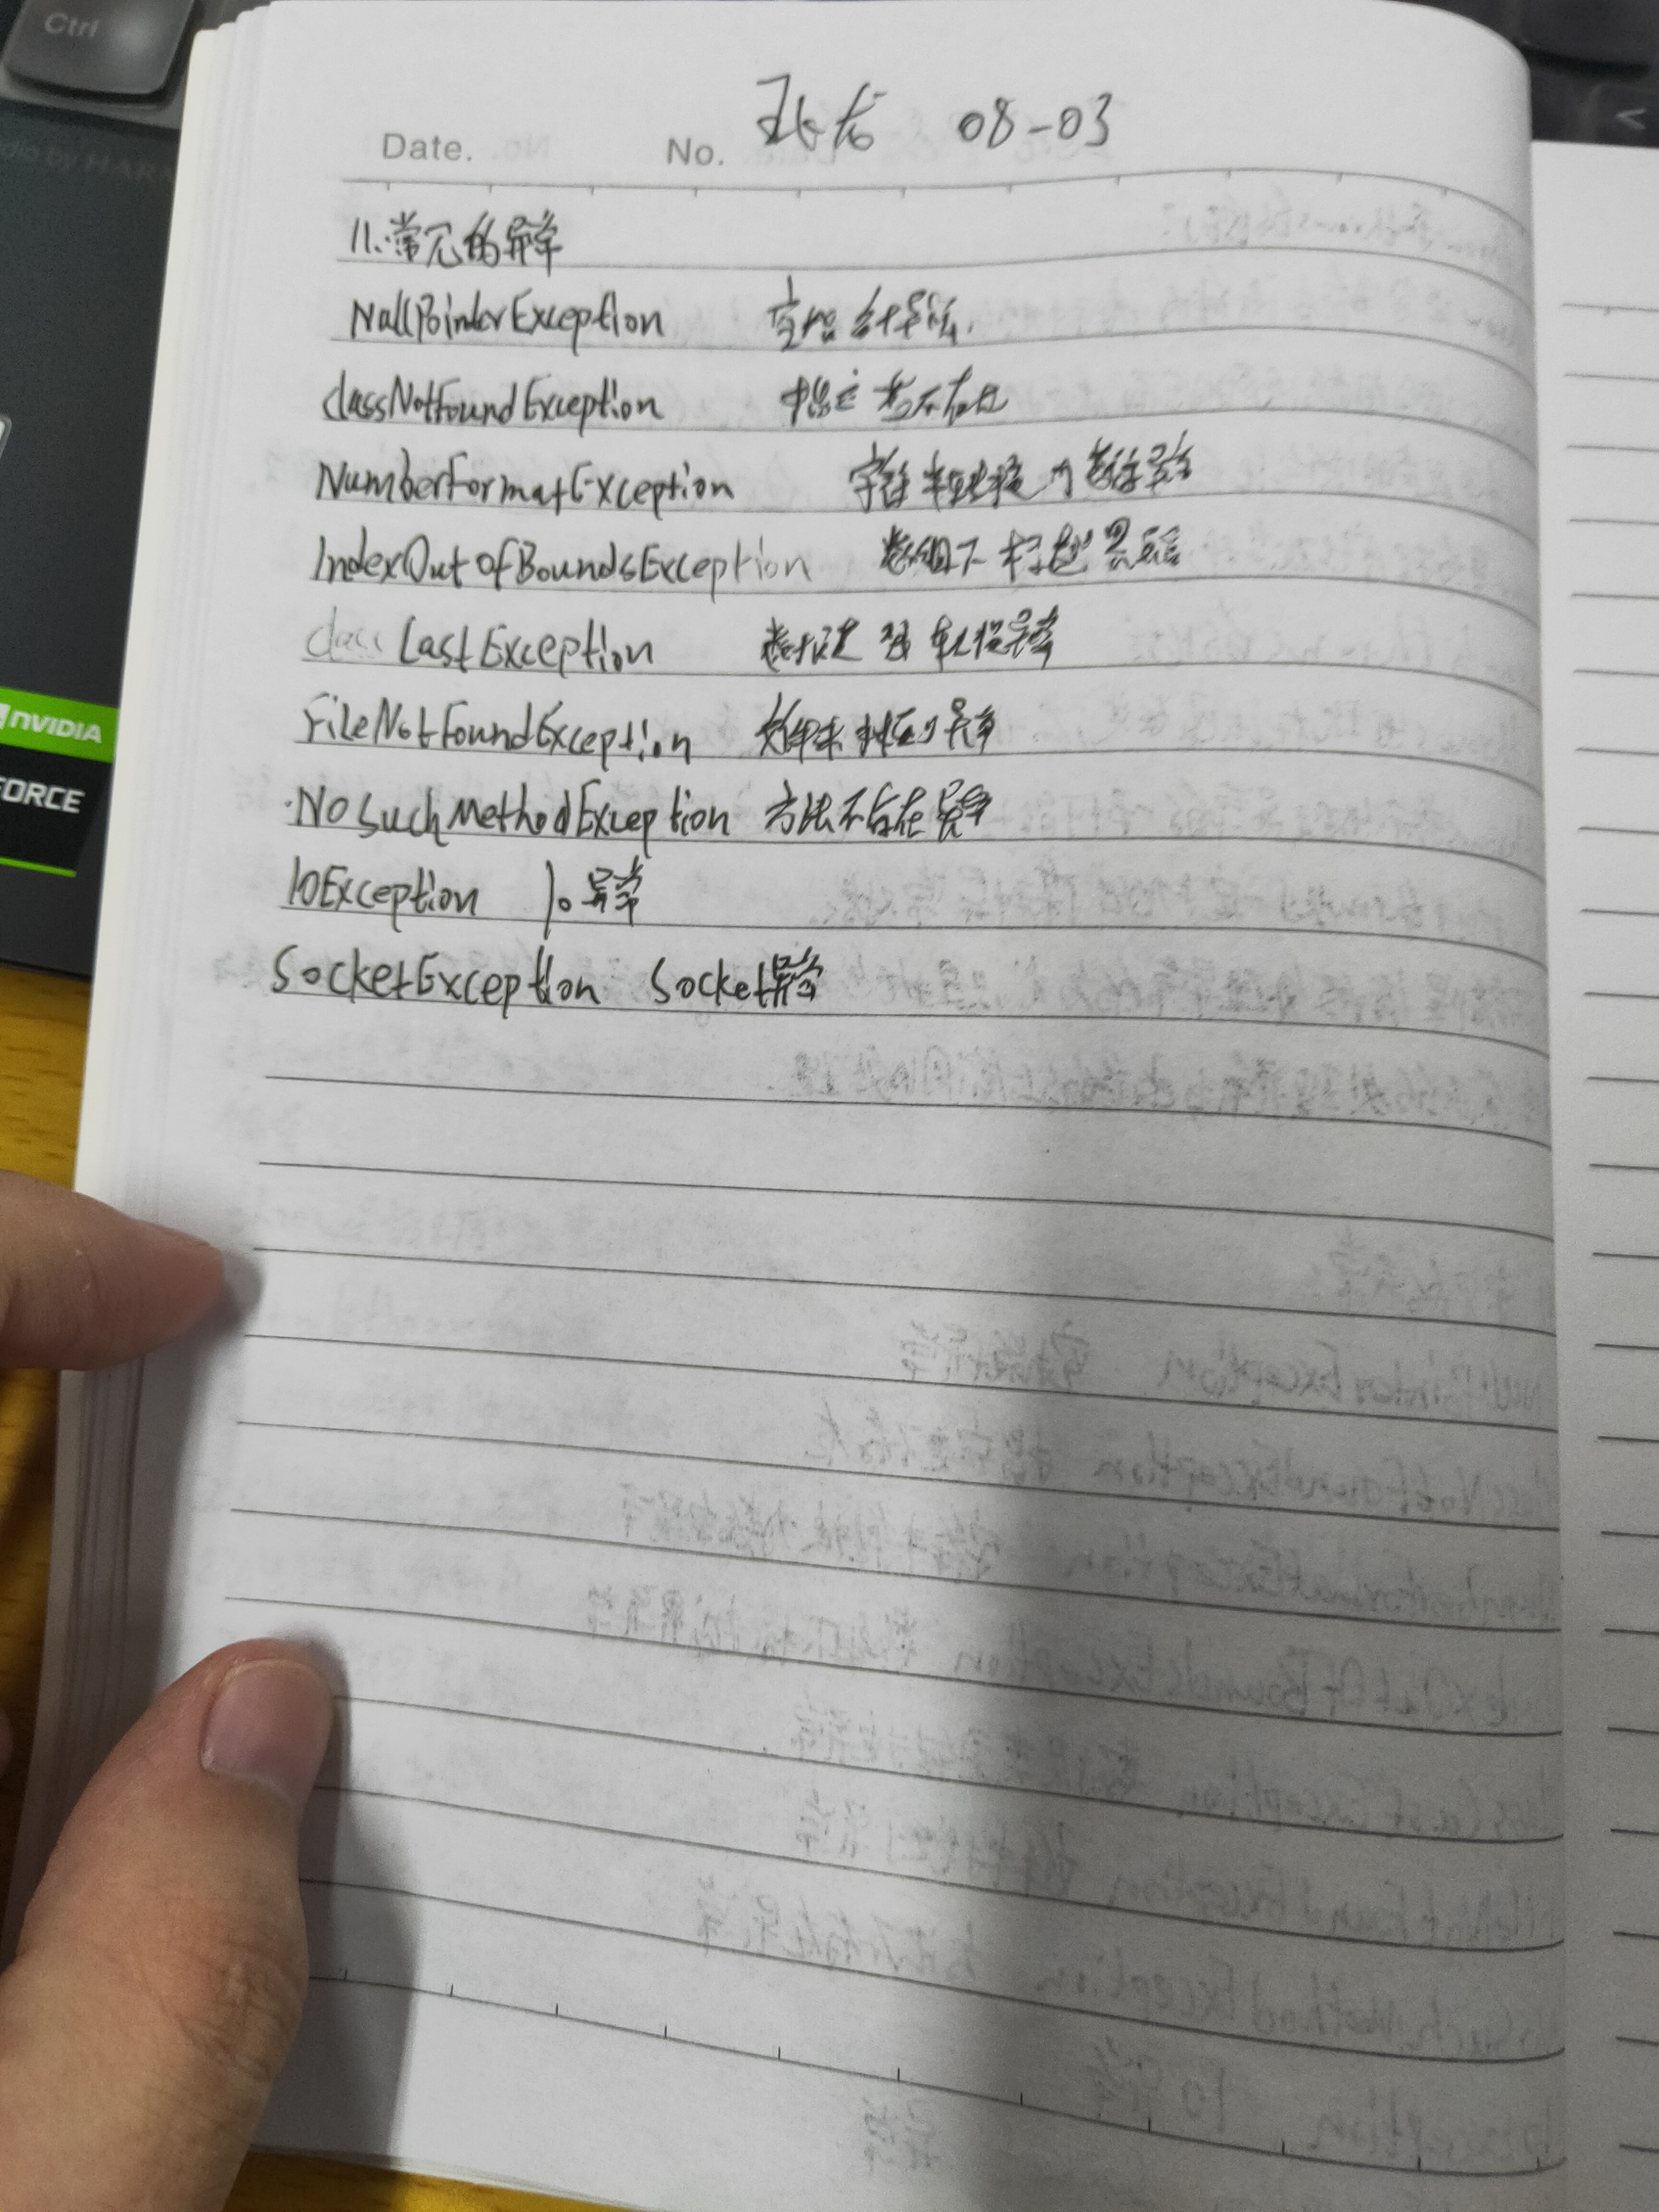 Ctrl
Date. No. 08-03
11.常见的异常
NullPointerException 空指针异常.
classNotFoundException 指定类不存在
NumberFormatException 字符串转换为数字异常
IndexOutOfBoundsException 数组下标越界异常
class CastException 数据类型转换异常
FileNotFoundException 文件未找到异常
NoSuchMethodException 方法不存在异常
IOException Io异常
SocketException Socket异常
NVIDIA
FORCE